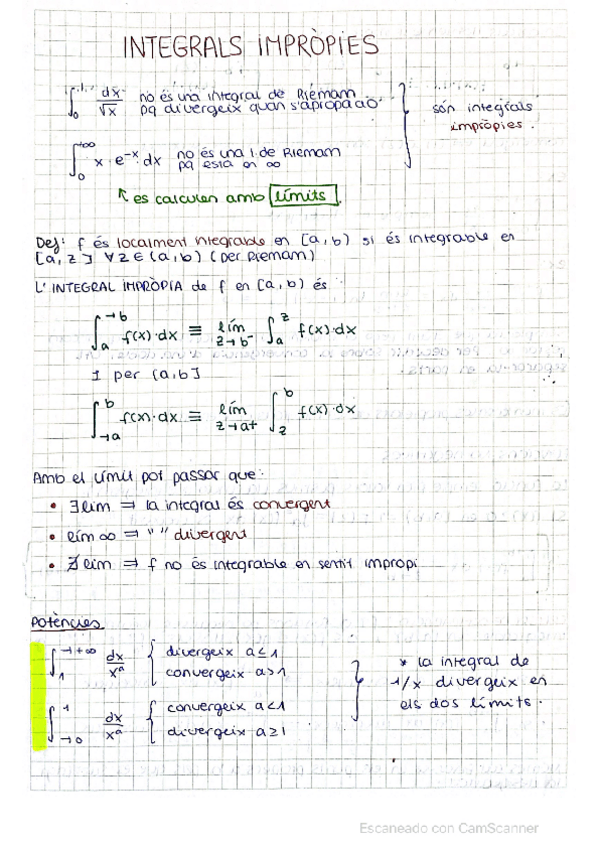 INTEGRALS IMPRÒPIES
∫₀¹ dx/√x no és una integral de Riemann
pq divergeix quan s'apropa a 0
són integrals
impròpies.
∫₀^→+∞ x·e^-x·dx no és una i. de Riemann
pq està en ∞
↖ es calculen amb límits.
Def: f és localment integrable en [a,b) si és integrable en
[a,z] ∀z∈(a,b) (per Riemann)
L'INTEGRAL IMPRÒPIA de f en [a,b) és
∫ₐ^→b f(x)·dx ≡ lím z→b⁻ ∫ₐ^z f(x)·dx
I per (a,b]
∫→ₐ^b f(x)·dx ≡ lím z→a+ ∫_z^b f(x)·dx
Amb el límit pot passar que:
• ∃lim ⇒ la integral és convergent
• lím ∞ ⇒ " " divergent
• ∄lim ⇒ f no és integrable en sentit impropi
Potències
∫₁^→+∞ dx/xᵃ { divergeix a≤1
convergeix a>1
∫→₀^1 dx/xᵃ { convergeix a<1
divergeix a≥1
* la integral de
1/x divergeix en
els dos límits.
Escaneado con CamScanner